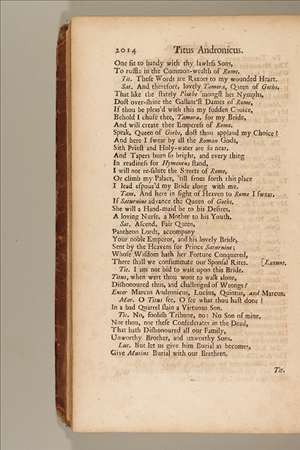 2014 Titus Andronicus.
One fit to bandy with thy lawless Sons,
To ruffle in the Common-wealth of Rome.
Tit. These Words are Razors to my wounded Heart.
Sat. And therefore, lovely Tamora, Queen of Goths,
That like the stately Phœbe 'mongst her Nymphs,
Dost over-shine the Gallant'st Dames of Rome,
If thou be pleas'd with this my sudden Choice,
Behold I chuse thee, Tamora, for my Bride,
And will create thee Empress of Rome.
Speak, Queen of Goths, dost thou applaud my Choice?
And here I swear by all the Roman Gods,
Sith Priest and Holy-water are so near,
And Tapers burn so bright, and every thing
In readiness for Hymeneus stand,
I will not re-salute the Streets of Rome,
Or climb my Palace, 'till from forth this place
I lead espous'd my Bride along with me.
Tam. And here in sight of Heaven to Rome I swear,
If Saturnine advance the Queen of Goths,
She will a Hand-maid be to his Desires,
A loving Nurse, a Mother to his Youth.
Sat. Ascend, Fair Queen,
Pantheon Lords, accompany
Your noble Emperor, and his lovely Bride,
Sent by the Heavens for Prince Saturnine;
Whose Wisdom hath her Fortune Conquered,
There shall we consummate our Spousal Rites. [Exeunt.
Tit. I am not bid to wait upon this Bride.
Titus, when wert thou wont to walk alone,
Dishonoured thus, and challenged of Wrongs?
Enter Marcus Andronicus, Lucius, Quintus, and Marcus.
Mar. O Titus see, O see what thou hast done!
In a bad Quarrel slain a Virtuous Son.
Tit. No, foolish Tribune, no: No Son of mine,
Nor thou, nor these Confederates in the Deed,
That hath Dishonoured all our Family,
Unworthy Brother, and unworthy Sons.
Luc. But let us give him Burial as becomes,
Give Mutius Burial with our Brethren.
Tit.